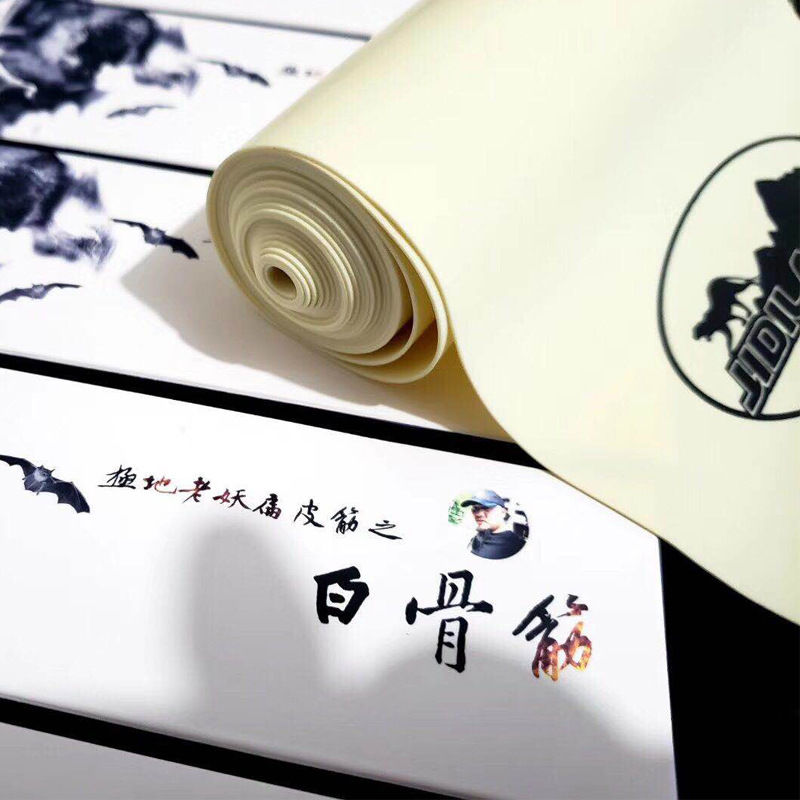 JIDILA
極地老妖扁皮筋之
白骨筋